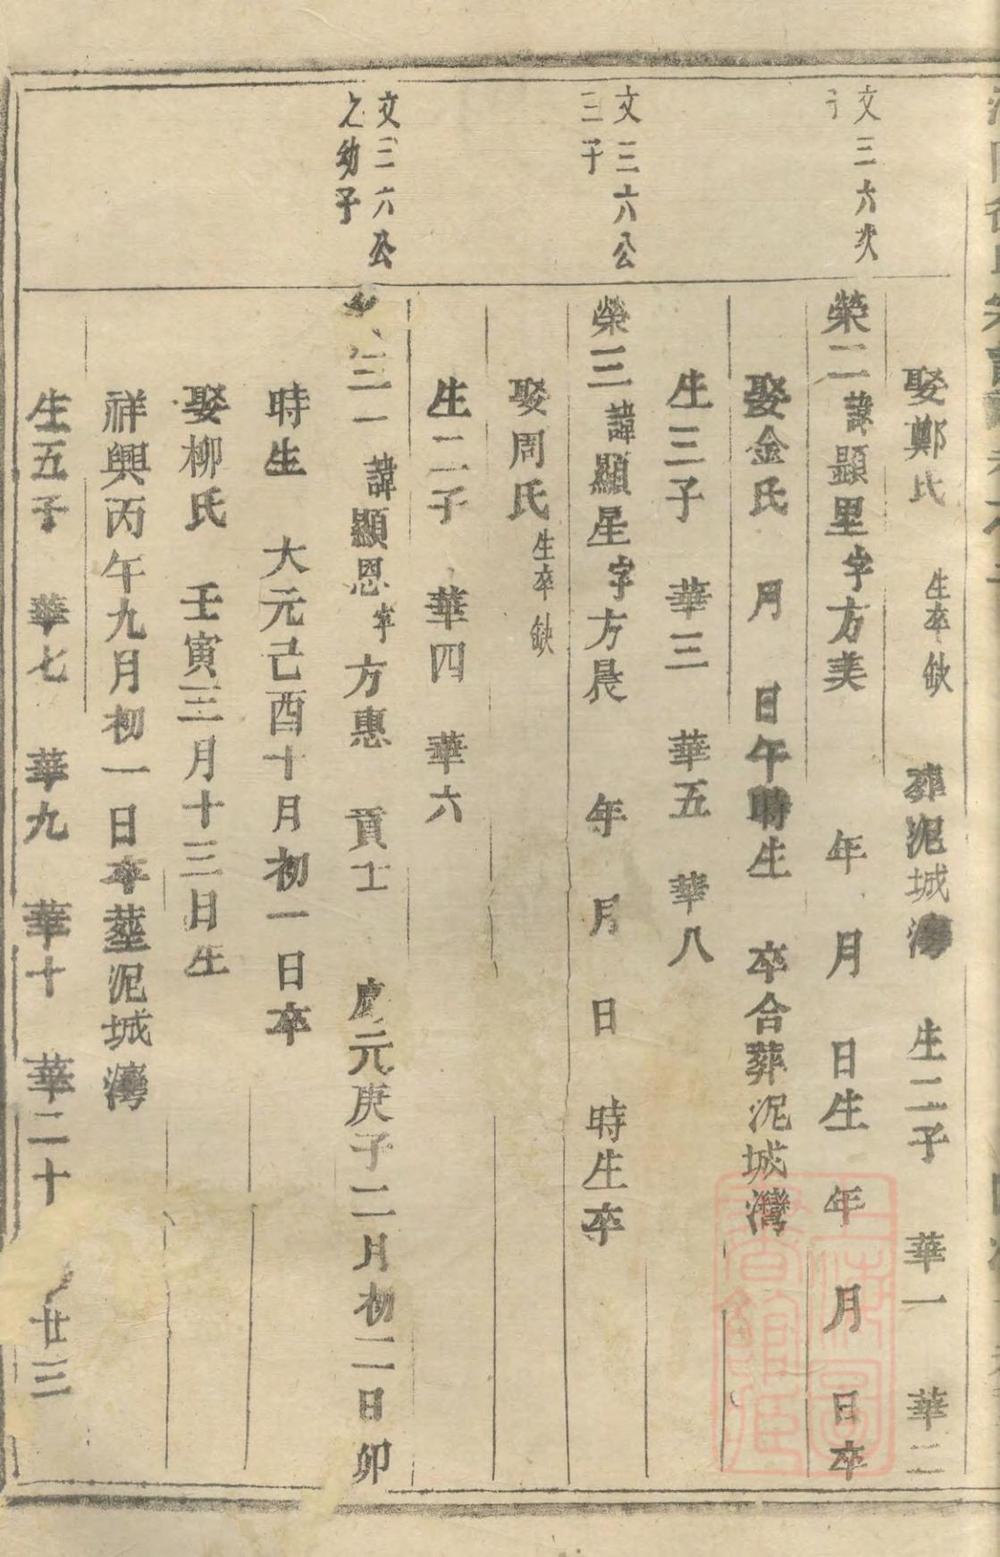 娶鄭氏 生卒缺 葬泥城灣 生二子 華一 華二
文三六次
子
榮二諱顯里字方美 年 月 日生 年 月 日卒
娶金氏 月 日午時生 卒合葬泥城灣
生三子 華三 華五 華八
文三六公
三子
榮三諱顯星字方晨 年 月 日 時生卒
娶周氏生卒缺
生二子 華四 華六
文三六公
之幼子
三一諱顯恩字方惠 貢士 慶元庚子二月初二日卯
時生 大元己酉十月初一日卒
娶柳氏 壬寅三月十三日生
祥興丙午九月初一日卒塟泥城灣
生五子 華七 華九 華十 華二十 廿三